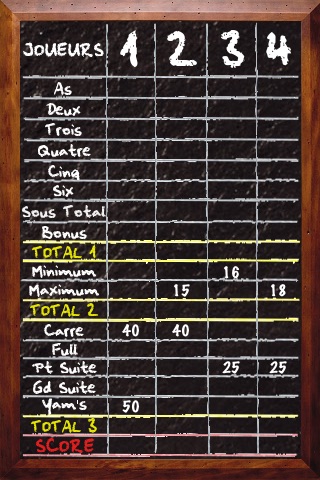 JOUEURS 1 2 3 4
As
Deux
Trois
Quatre
Cinq
Six
Sous Total
Bonus
TOTAL 1
Minimum 16
Maximum 15 18
TOTAL 2
Carre 40 40
Full
Pt Suite 25 25
Gd Suite
Yam's 50
TOTAL 3
SCORE